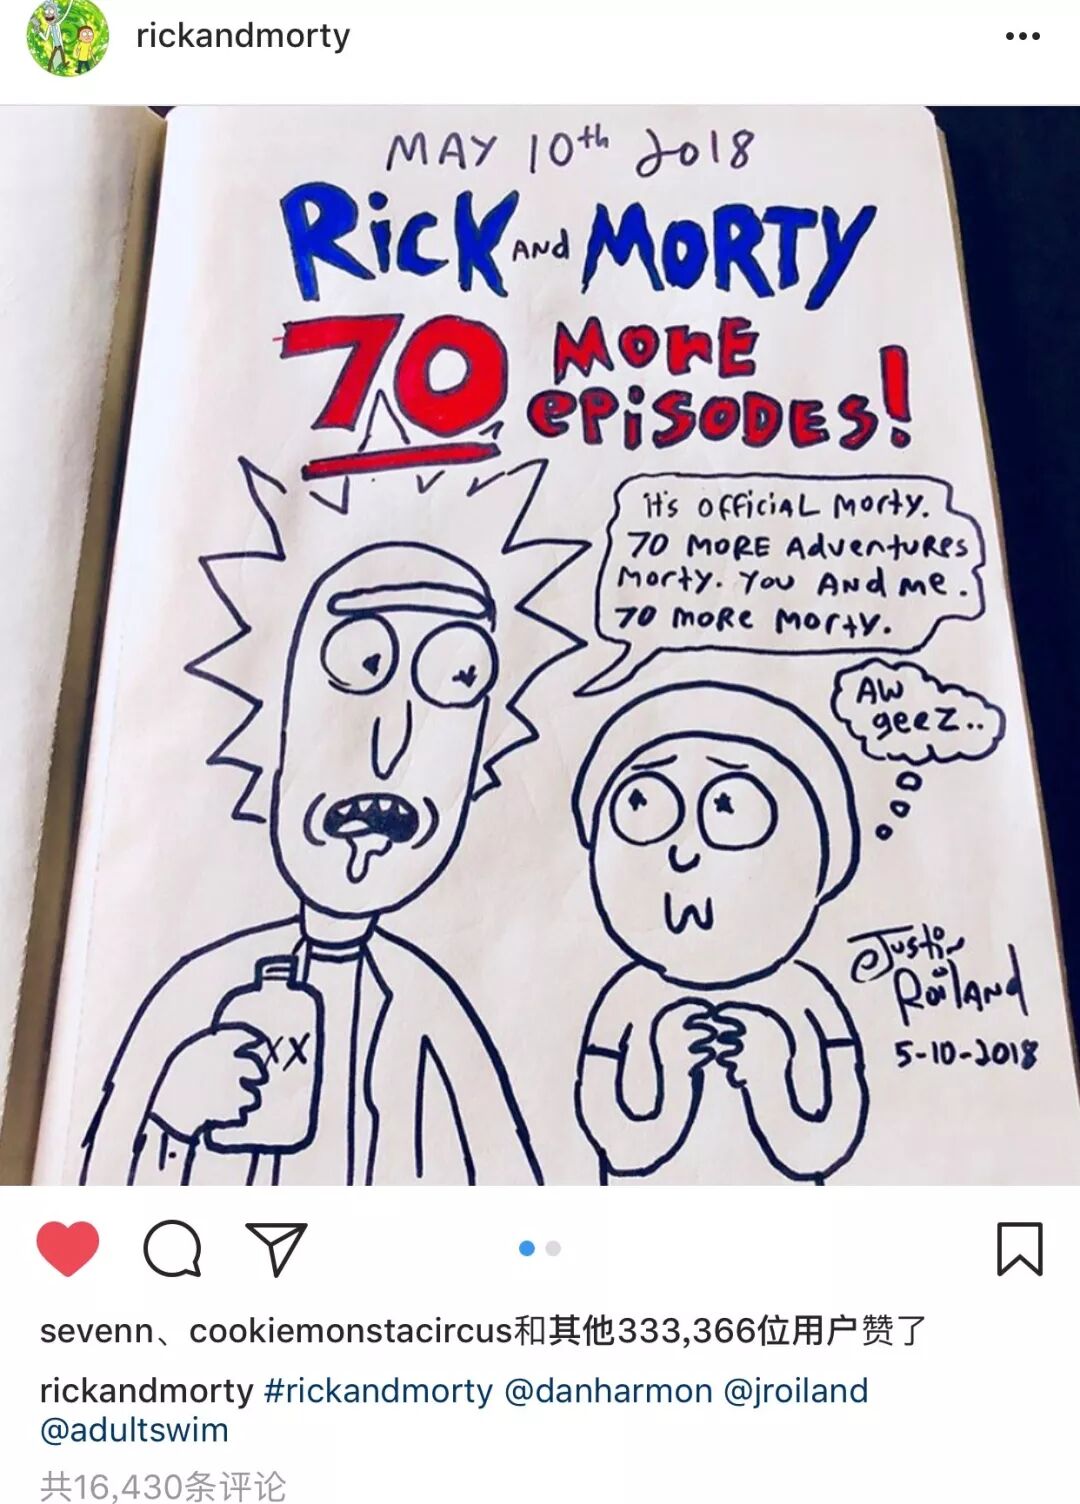 rickandmorty
MAY 10th 2018
RicK AND MORTY
70 MORE
EPiSODES!
it's OfficiAL Morty.
70 MORE AdventuRes
Morty. You AND me.
70 moRe Morty.
AW
geez..
@Justin
RoiLAND
5-10-2018
XX
sevenn、cookiemonstacircus和其他333,366位用户赞了
rickandmorty #rickandmorty @danharmon @jroiland
@adultswim
共16,430条评论